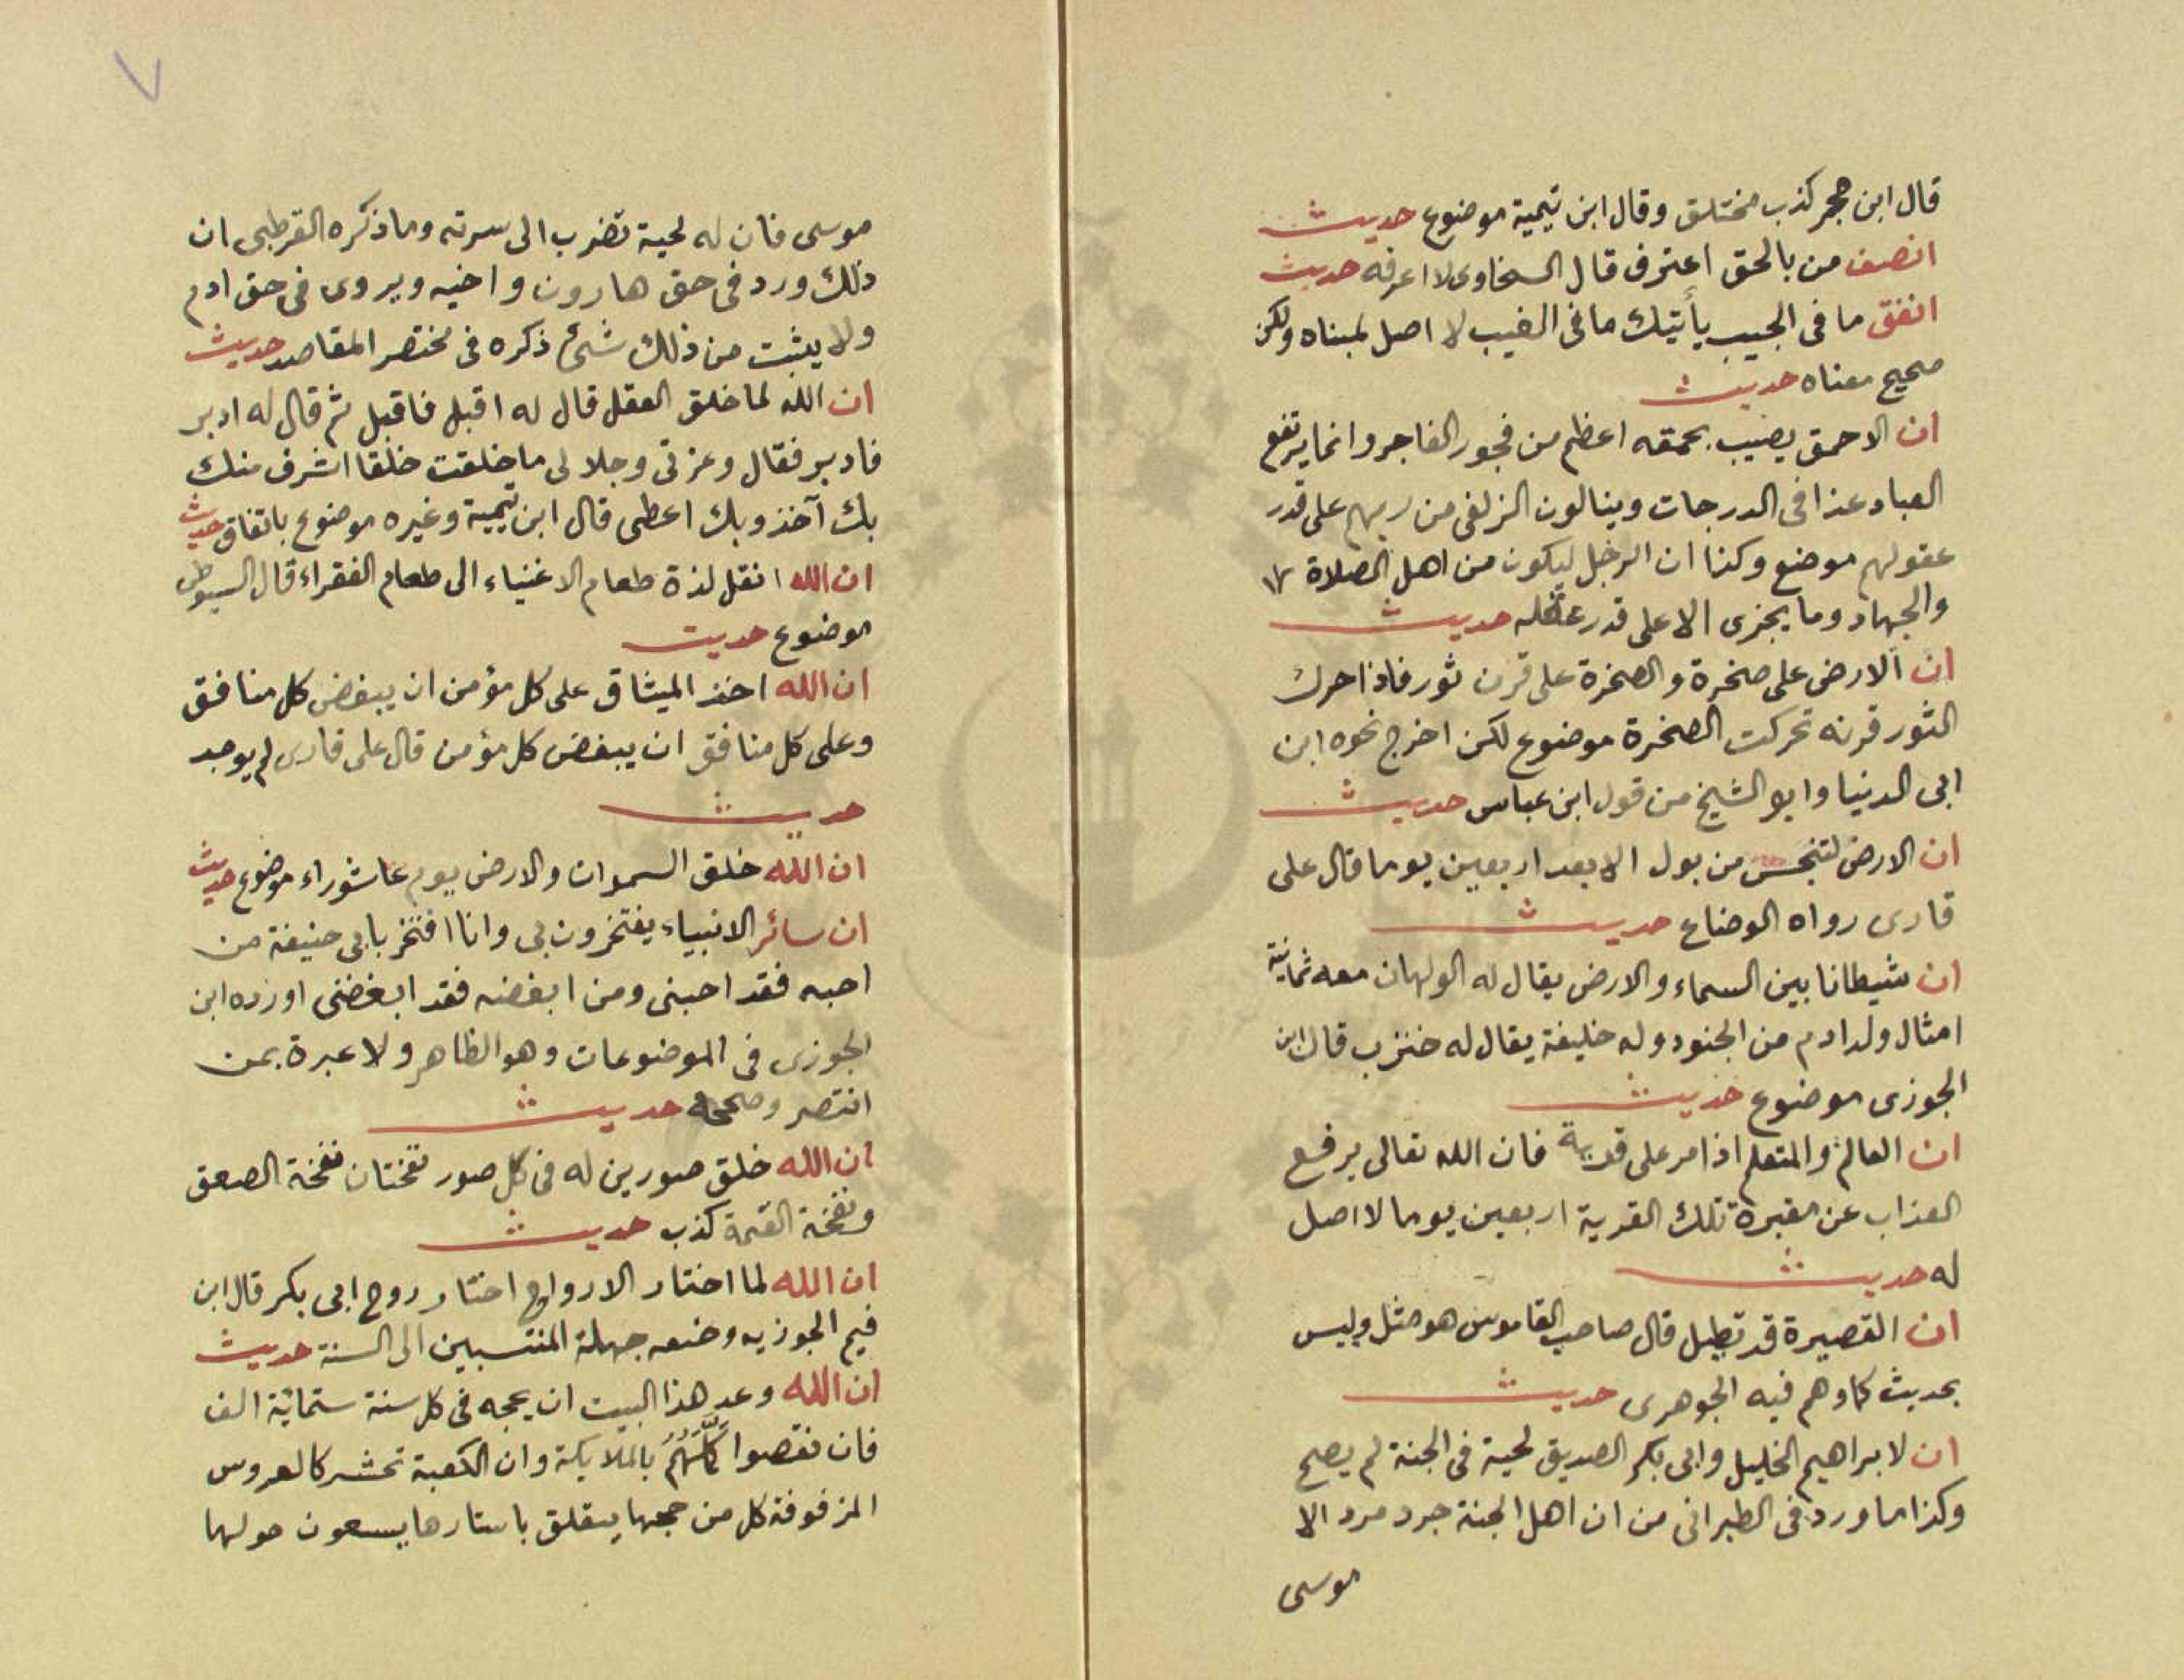 قال ابن حجر كذب مختلق وقال ابن تيمية موضوع حديث
انصف من بالحق اعترف قال السخاوى لا اعرفه حديث
انفق ما فى الجيب يأتيك ما فى الغيب لا اصل لمبناه ولكن
صحيح معناه حديث
ان الاحمق يصيب بحمقه اعظم من فجور الفاجر وانما يرتفع
العباد غدا فى الدرجات وينالون الزلفى من ربهم على قدر
عقولهم موضع وكذا ان الرجل ليكون من اهل الصلاة
والجهاد وما يجزى الا على قدر عقله حديث
ان الارض على صخرة والصخرة على قرن ثور فاذا حرك
الثور قرنه تحركت الصخرة موضوع لكن اخرج نحوه ابن
ابى الدنيا وابو الشيخ من قول ابن عباس حديث
ان الارض لتنجس من بول الا بعد اربعين يوما قال على
قارى رواه الوضاع حديث
ان شيطانا بين السماء والارض يقال له الولهان معه ثمانية
امثال ولد ادم من الجنود وله خليفة يقال له خنزب قال ابن
الجوزى موضوع حديث
ان العالم والمتعلم اذا مر على قرية فان الله تعالى يرفع
العذاب عن مقبرة تلك القرية اربعين يوما لا اصل
له حديث
ان القصيرة قد تطيل قال صاحب القاموس هو مثل وليس
بحديث كما وهم فيه الجوهرى حديث
ان لابراهيم الخليل وابى بكر الصديق لحية فى الجنة لم يصح
وكذا ما ورد فى الطبرانى من ان اهل الجنة جرد مرد الا
موسى
٧
موسى فان له لحية تضرب الى سرته وما ذكره القرطبى ان
ذلك ورد فى حق هارون واخيه ويروى فى حق ادم
ولا يثبت من ذلك شئ ذكره فى مختصر المقاصد حديث
ان الله لما خلق العقل قال له اقبل فاقبل ثم قال له ادبر
فادبر فقال وعزتى وجلالى ما خلقت خلقا اشرف منك
بك آخذ وبك اعطى قال ابن تيمية وغيره موضوع باتفاق حديث
ان الله انقل لذة طعام الاغنياء الى طعام الفقراء قال السيوطى
موضوع حديث
ان الله اخذ الميثاق على كل مؤمن ان يبغض كل منافق
وعلى كل منافق ان يبغض كل مؤمن قال على قارى لم يوجد
حديث
ان الله خلق السموات والارض يوم عاشوراء موضوع حديث
ان سائر الانبياء يفتخرون بى وانا افتخر بابى حنيفة من
احبه فقد احبنى ومن ابغضه فقد ابغضنى اورده ابن
الجوزى فى الموضوعات وهو الظاهر ولا عبرة بمن
انتصر وصححه حديث
ان الله خلق صورين له فى كل صور نفختان نفخة الصعق
ونفخة القيمة كذب حديث
ان الله لما اختار الارواح اختار روح ابى بكر قال ابن
قيم الجوزيه وضعه جهلة المنتسبين الى السنة حديث
ان الله وعد هذا البيت ان يحجه فى كل سنة ستمائة الف
فان نقصوا كملهم بالملايكة وان الكعبة تحشر كالعروس
المزفوفة كل من حجها يتعلق باستارها يسعون حولها